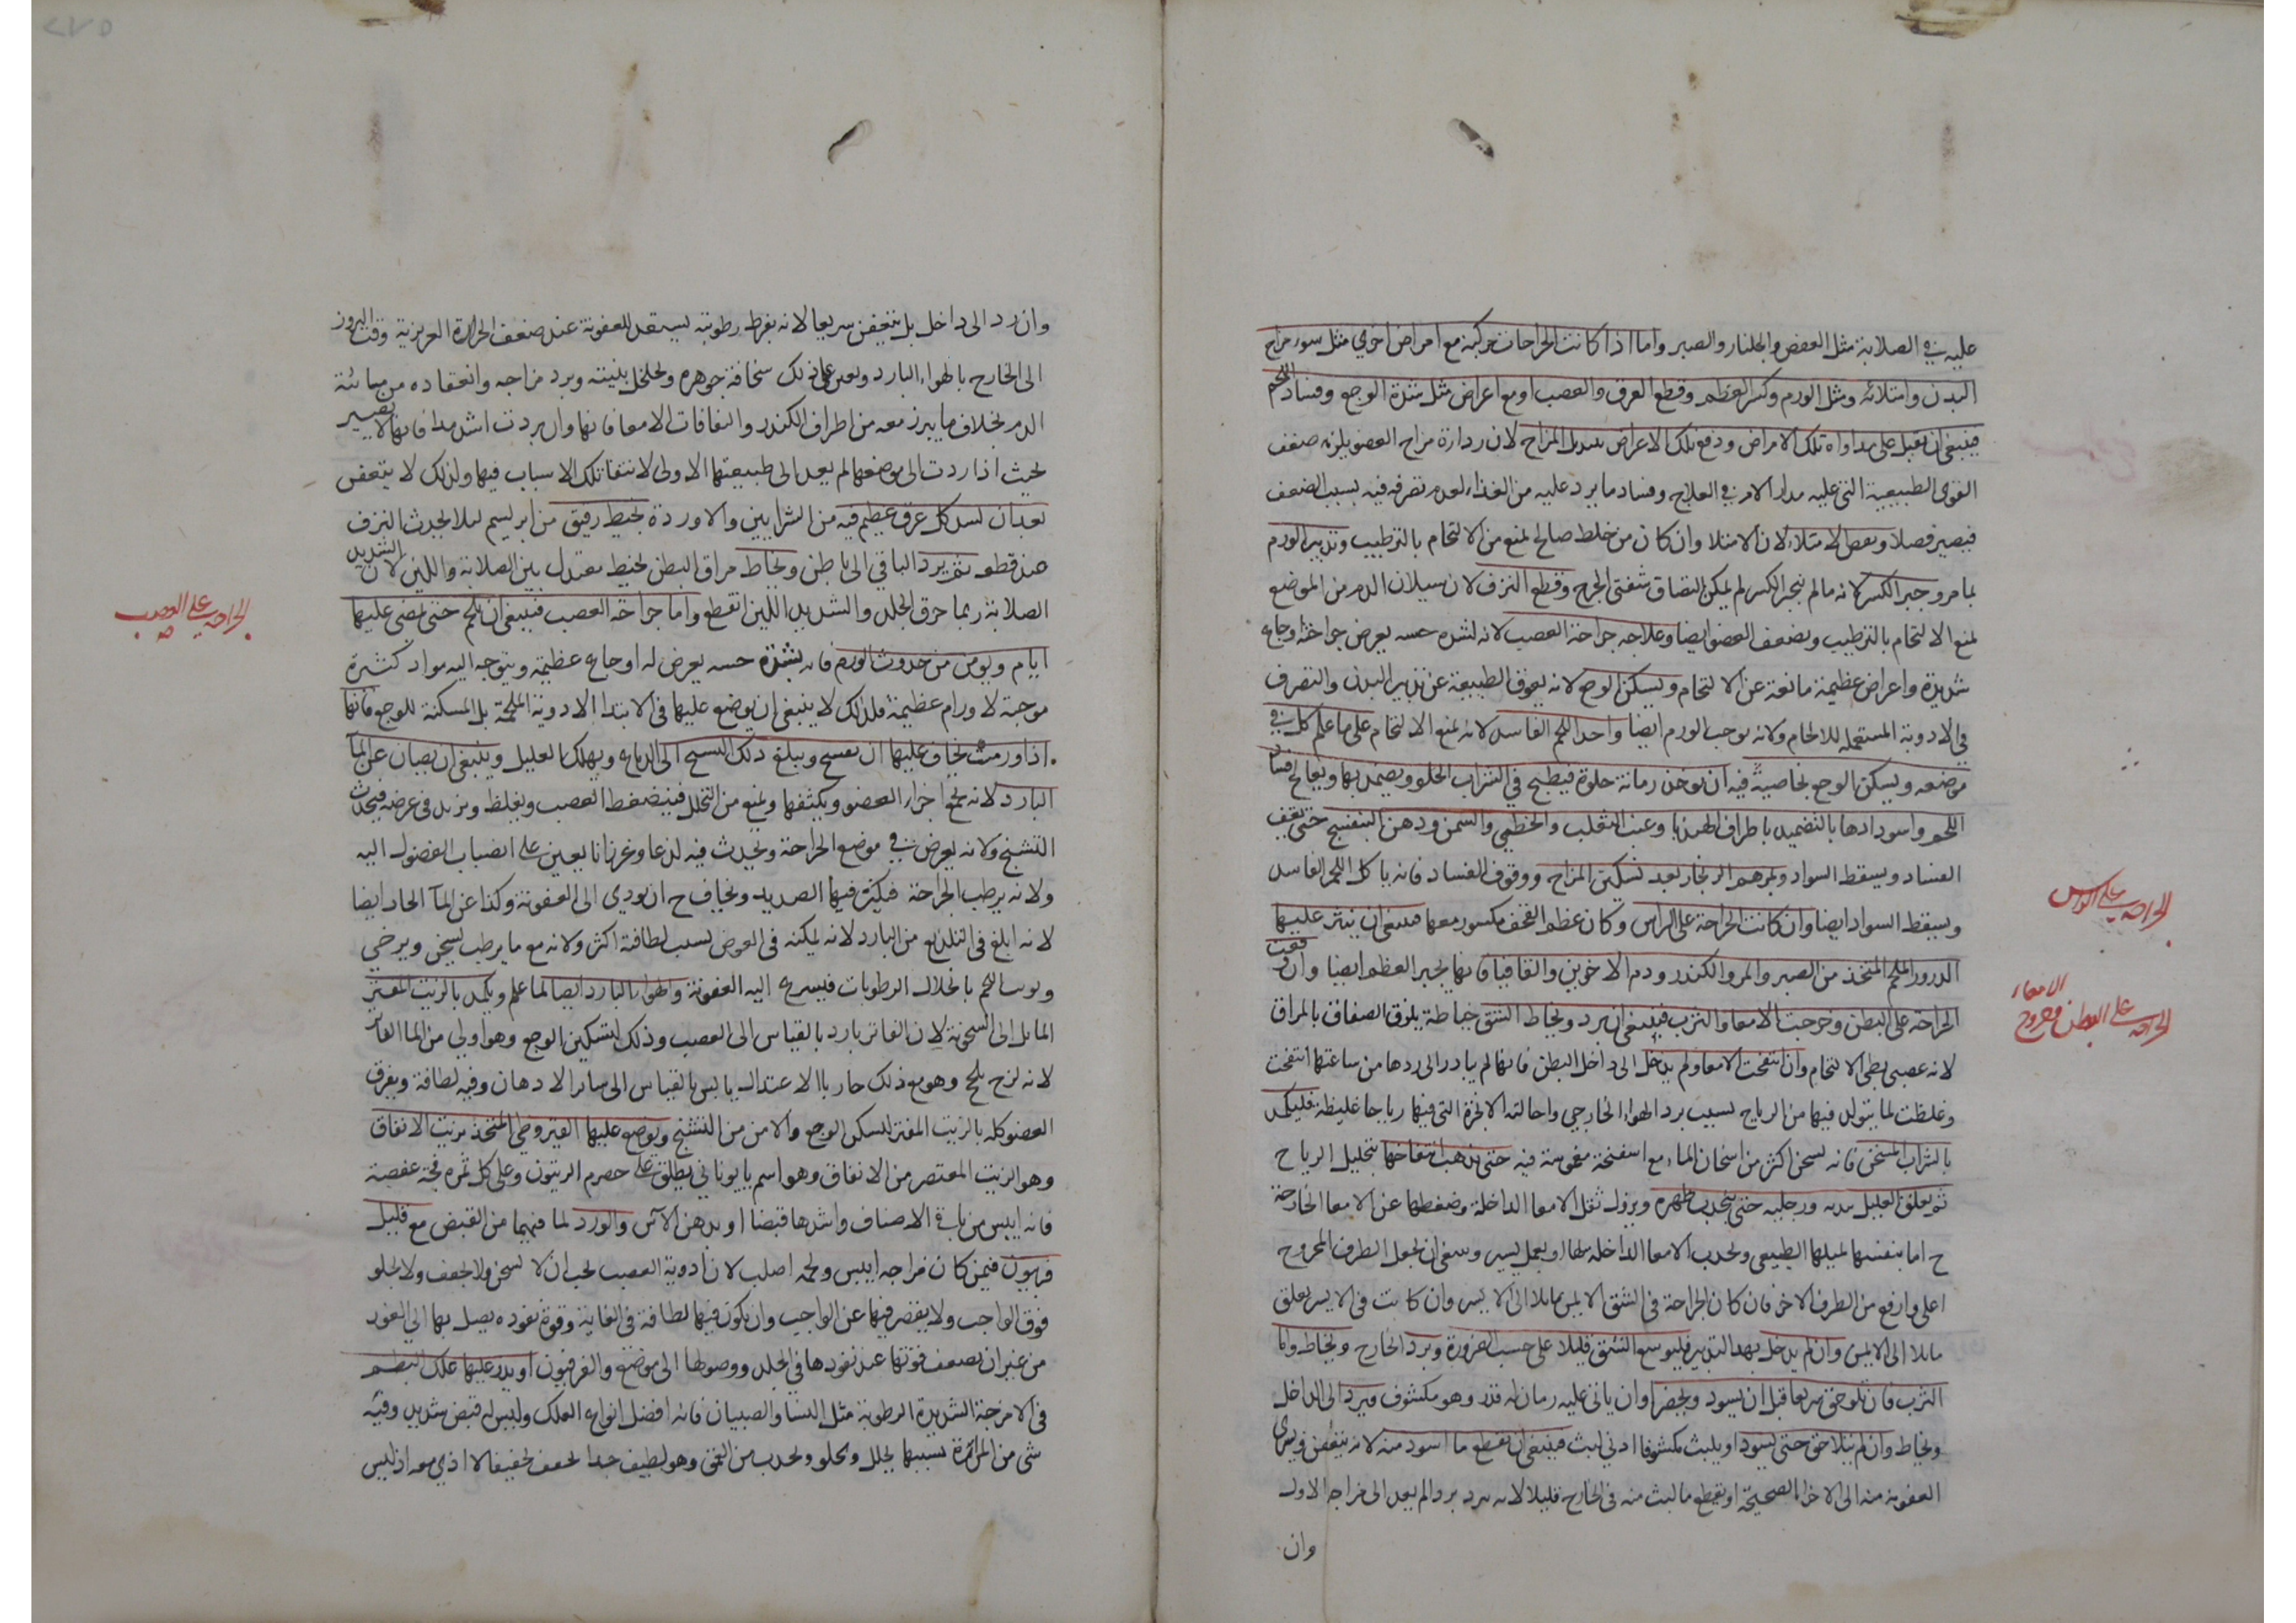 عليه في الصلابة مثل العفص والجلنار والصبر واما اذا كانت الجراحات مركبة مع امراض اخري مثل سوء مزاج
البدن وامتلائه ومثل الورم وكسر العظم وقطع العرق والعصب او مع اعراض مثل شدة الوجع وفساد اللحم
فينبغي ان يقبل على مداواة تلك الامراض ودفع تلك الاعراض بتبديل المزاج لان رداءة مزاج العضو يلزمه ضعف
القوي الطبيعية التي عليه مدار الامر في العلاج وفساد ما يرد عليه من الغذاء لعدم تصرفه فيه بسبب الضعف
فيصير فصلا وبعض الامتلاء لان الامتلا وان كان من خلط صالح لمنع من الالتحام بالترطيب وتدبير الورم
بما مر وجبر الكسر لانه ما لم ينجبر الكسر لم يمكن التصاق شفتي الجرح وقطع النزف لان سيلان الدم من الموضع
لمنع الالتحام بالترطيب ويضعف العضو ايضا وعلاجه جراحة العصب لانه لشده حسه يعرض جراحته وجاع
شديدة واعراض عظيمة مانعة عن الالتحام وتسكن الوجع لانه يعوق الطبيعة عن تدبير البدن والتصرف
في الادوية المستعمله للالحام ولانه يوجب الورم ايضا واحد اللحم الفاسد لانه لمنع الالتحام على ما علم كل في
موضعه ويسكن الوجع بخاصية فيه ان يوخذ رمانة حلوة فيطبخ في الشراب الحلو ويضمد بها ويعالج فساد
اللحم واسودادها بالتضميد باطراف الهندبا وعنب الثعلب والخطمي والسمن ودهن البنفسج حتى يقف
الفساد ويسقط السواد ولمرهم الزنجار بعد تسكين المزاج ووقوف الفساد فانه ياكل اللحم الفاسد
ويسقط السواد ايضا وان كانت الجراحة على الراس وكان عظم القحف مكسور معها فينبغي ان ينثر عليها
الذرور الملحم المتخذ من الصبر والمر والكندر ودم الاخوين والقاقيا فانها يجبر العظم ايضا وان وقعت
الجراحة على البطن وخرجت الامعا والثرب فينبغي ان يرد ويخاط الشق خياطة يلزق الصفاق بالمراق
لانه عصبي بطي الالتحام وان انتفخت الامعا ولم يدخل الى داخل البطن فانها لم يبادر الى ردها من ساعتها انتفخت
وغلظت لما يتولد فيها من الرياح بسبب برد الهواء الخارجي واحالته الابخرة التي فيها رياحا غليظة فليكمد
بالشراب المسخن فانه يسخن اكثر من اسخان الماء مع اسفنجة مغموسة فيه حتى يذهب انتفاخها بتحليل الرياح
ثم يعلق العليل بيديه ورجليه حتى ينجذب ظهره ويزول ثقل الامعا الداخلة وضغطها عن الامعا الخارجة
ح اما بنفسها لميلها الطبيعي ولجذب الامعا الداخله لها او بعمل يسير وينبغي ان يجعل الطرف المجروح
اعلى وارفع من الطرف الاخر فان كان الجراحة في الشق الايمن مايلا الى الايسر وان كانت في الايسر يعلق
مايلا الى الايمن وان لم يدخل بهذا التدبير فليوسع الشق قليلا على حسب الضرورة ويرد الخارج ويخاط واما
الثرب فان تلوحق سريعا قبل ان يسود ويخضر او ان ياتي عليه زمان له قدر وهو مكشوف فيرد الى الداخل
ويخاط وان لم يتلاحق حتى يسود او يلبث مكشوفا ادني لبث فينبغي ان يقطع ما اسود منه لانه يتعفن ويسري
العفونة منه الى الاجزا الصحيحة او يقطع ما لبث منه في الخارج قليلا لانه يبرد بردا لم يعد الى مزاجه الاول
وان
الجراحة على الراس
الجراحة على البطن وخروج الامعاء
وان رد الى داخل بل يتعفن سريعا لانه بفرط رطوبته يستعد للعفونة عند ضعف الحرارة الغريزية وقت البروز
الى الخارج بالهواء البارد ويعين على ذلك سخافة جوهره وتخلخل بنيته وبرد مزاجه وانعقاده من مائية
الدم بخلاف ما يبرز معه من اطراف الكبد ولفافات الامعا فانها وان بردت اشد مدا فانها لا يصير
بحيث اذا ردت الى موضعها لم يعد الى طبيعتها الاولى لانتفا تلك الاسباب فيها ولذلك لا يتعفن
بعد ان يسد كل عرق عظيم فيه من الشرايين والاوردة بخيط رقيق من ابريسم ليلا يحدث النزف
عند قطعه ثم يرد الباقي الى باطن ويخاط مراق البطن بخيط معتدل بين الصلابة واللين لان الشديد
الصلابة ربما خرق الجلد والشديد اللين انقطع واما جراحة العصب فينبغي ان يلحم حتى يمضي عليها
ايام ويومن من حدوث الورم فانه بشدة حسه يعرض له اوجاع عظيمة ويتوجه اليه مواد كثيرة
موجبة لاورام عظيمة فلذلك لا ينبغي ان يوضع عليها في الابتدا الادوية الملحمة بل المسكنة للوجع فانها
اذا ورمت يخاف عليها ان يتشنج ويبلغ ذلك التشنج الى الدماغ ويهلك العليل وينبغي ان يصان عن الما
البارد لانه يجمع اجزاء العضو ويكثفها ويمنع من التحلل فينضغط العصب ويغلظ ويزيد في عرضه فيحدث
التشنج ولانه يعرض في موضع الجراحة ويحدث فيه لذعا وغرزانا يعين على انصباب الفضول اليه
ولانه يرطب الجراحة فيكثر فيها الصديد ويخاف ح ان يودي الى العفونة وكذا عن الما الحار ايضا
لانه ابلغ في التلذيع من البارد لانه يمكنه في الغوض بسبب لطافته اكثر ولانه مع ما يرطب يسخن ويرخي
بانحلال الرطوبات فيسرع اليه العفونة والهواء البارد ايضا لما علم ويكمد بالزيت المفتر
المايل الى السخونة لان الفاتر بارد بالقياس الى العصب وذلك لتسكين الوجع وهو اولي من الما الفاتر
لانه لزج يلحج وهو مع ذلك حار بالاعتدال يابس بالقياس الى ساير الادهان وفيه لطافة ويغرق
العضو كله بالزيت المفتر لتسكن الوجع والامن من التشنج ويوضع عليها القيروطي المتخذ بزيت الانفاق
وهو الزيت المعتصر من الانفاق وهو اسم يايوناني يطلق على حصرم الزيتون وعلى كل ثمره فجة عفصة
فانه ايبس من باقي الاصناف واشدها قبضا او بدهن الآس والورد لما فيهما من القبض مع قليل
فربيون فيمن كان مزاجه ايبس ولحمه اصلب لان ادوية العصب يجب ان لا يسخن ولا يجفف ولا يجلو
فوق الواجب ولا يقصر فيها عن الواجب وان يكون فيها لطافة في الغاية وقوة نفوذه يصل بها الى الغور
من غير ان يضعف قوتها عند نفودها في الجلد ووصولها الى موضع والفرفيون او يذر عليها علك البطم
في الامزجة الشديدة الرطوبة مثل النسا والصبيان فانه افضل انواع العلك وليس له قبض شديد وفيه
شي من المرارة بسببها يحلل ويجلو ويجذب من العمق وهو لطيف جدا يجفف تجفيفا لا اذي معه اذ ليس
الجراحة على العصب